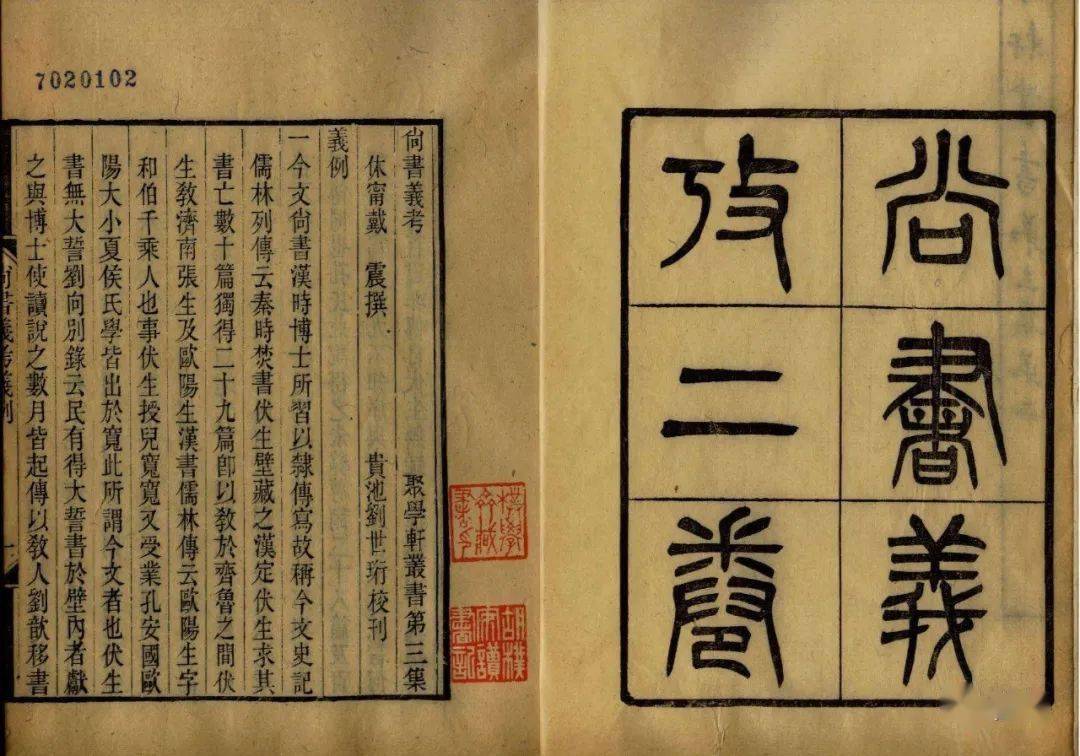 尚書義
攷二卷
7020102
尚書義考　聚學軒叢書第三集
休甯戴　震撰　貴池劉世珩校刊
義例
一今文尚書漢時博士所習以隸傳寫故稱今文史記
儒林列傳云秦時焚書伏生壁藏之漢定伏生求其
書亡數十篇獨得二十九篇卽以敎於齊魯之間伏
生敎濟南張生及歐陽生漢書儒林傳云歐陽生字
和伯千乘人也事伏生授兒寬寬又受業孔安國歐
陽大小夏侯氏學皆出於寬此所謂今文者也伏生
書無大誓劉向別錄云民有得大誓書於壁內者獻
之與博士使讀說之數月皆起傳以敎人劉歆移書
尚書義考義例
一
樸學齋藏書之印
胡樸安讀書記